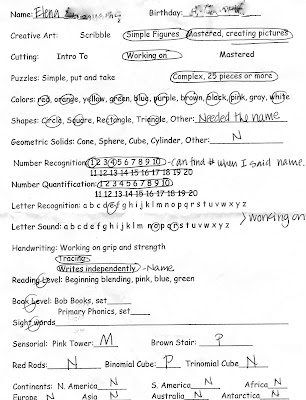 Name: Elena Birthday:
Creative Art: Scribble Simple Figures Mastered, creating pictures
Cutting: Intro To Working on Mastered
Puzzles: Simple, put and take Complex, 25 pieces or more
Colors: red, orange, yellow, green, blue, purple, brown, black, pink, gray, white
Shapes: Circle, Square, Rectangle, Triangle, Other: Needed the name
Geometric Solids: Cone, Sphere, Cube, Cylinder, Other: N
Number Recognition: 1 2 3 4 5 6 7 8 9 10 - can find # when I said name.
11 12 13 14 15 16 17 18 19 20
Number Quantification: 1 2 3 4 5 6 7 8 9 10
11 12 13 14 15 16 17 18 19 20
Letter Recognition: a b c d e f g h i j k l m n o p q r s t u v w x y z
Letter Sound: a b c d e f g h i j k l m n o p q r s t u v w x y z > working on
Handwriting: Working on grip and strength
Tracing
Writes independently - Name
Reading Level: Beginning blending, pink, blue, green
Book Level: Bob Books, set
Primary Phonics, set
Sight words
Sensorial: Pink Tower: M Brown Stair: P
Red Rods: N Binomial Cube: P Trinomial Cube N
Continents: N. America N S. America N Africa N
Europe N Asia N Australia N Antarctica N